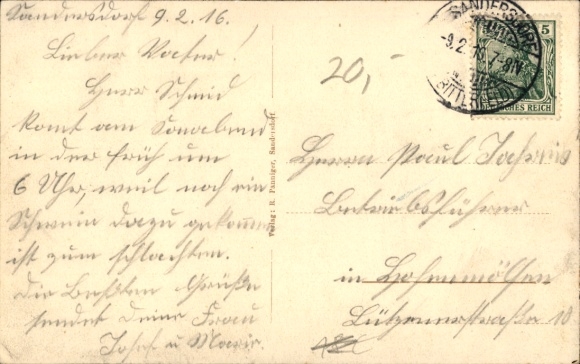 Sandersdorf 9.2.16.
Lieber Vater!
Herr Schmid
komt am Sonabend
in der früh um
6 Uhr, weil noch ein
Schwein dazu gekommen
ist zum schlachten.
die Besten Grüße
sendet deine Frau
Josef u Marie
Verlag: R. Panniger, Sandersdorf
20,-
SANDERSDORF
-9.2.16 7-8N
BITTERFELD
5
DEUTSCHES REICH
Herrn Paul
Betriebsführer
in Hohenmölsen
Lützenerstraße 10